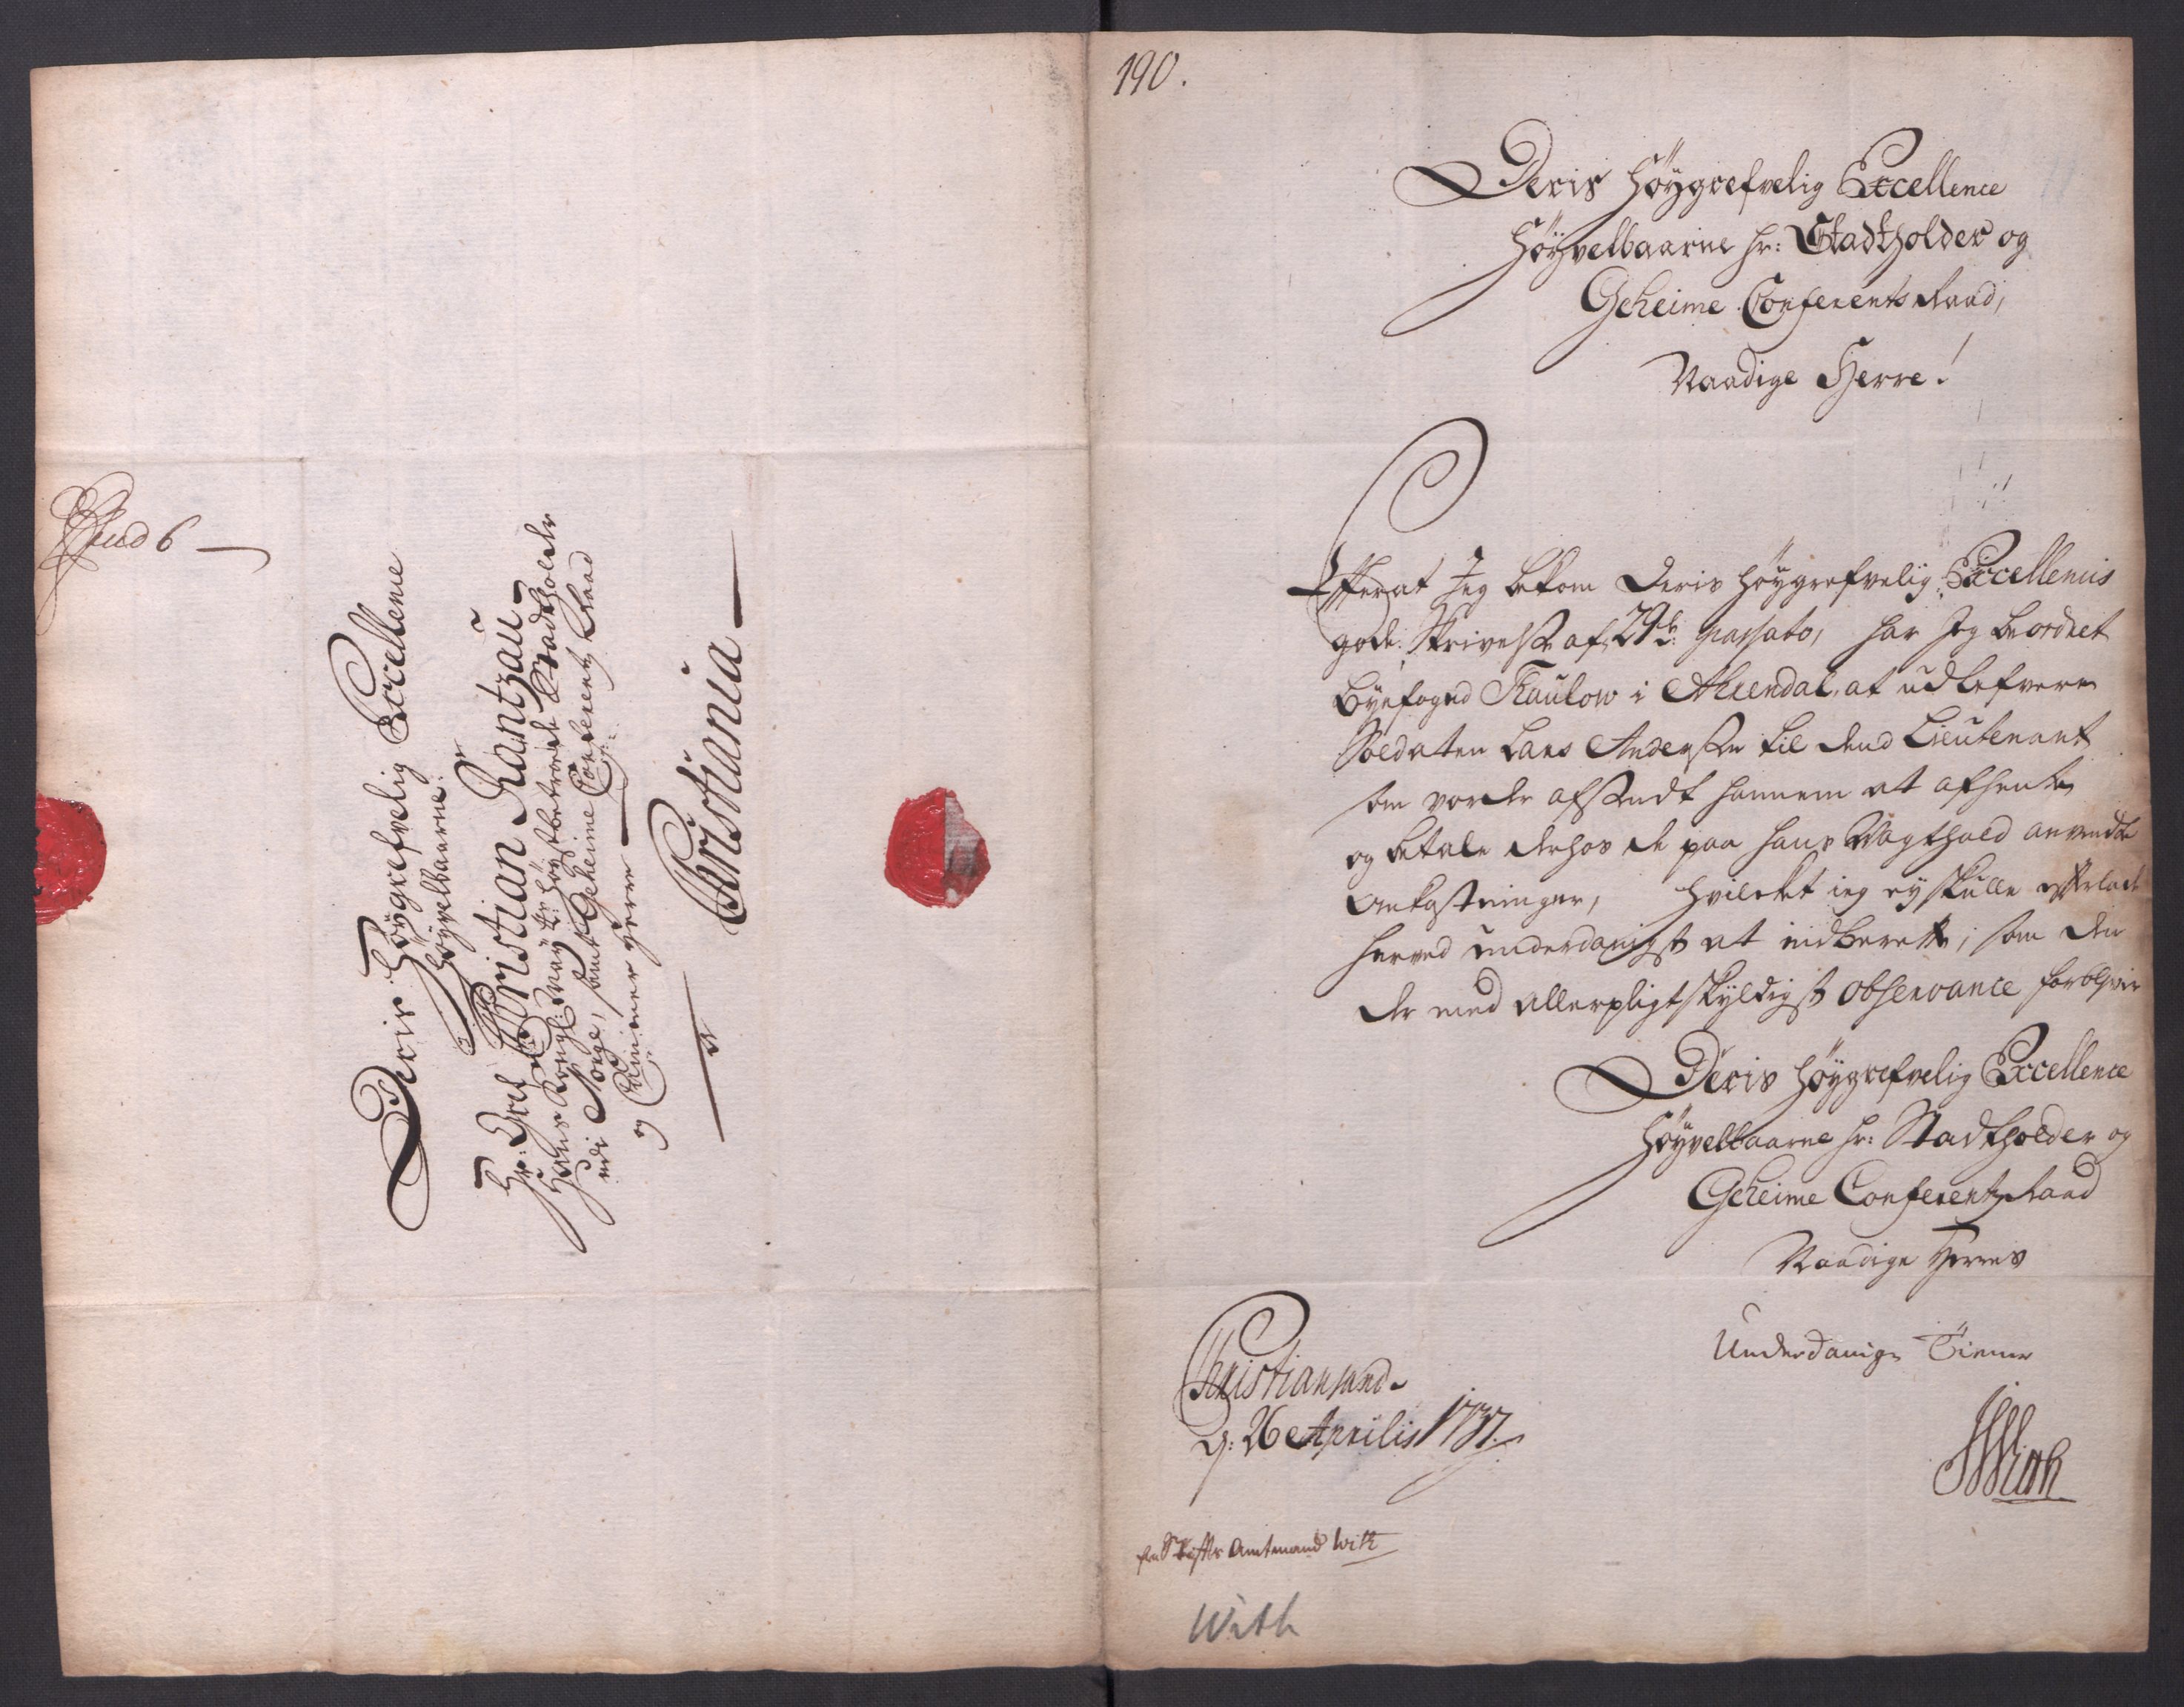 Deris Høygrefvelig Excellence
Høyvelbaarne
Hr: Gref Christian Rantzau
Hans Kongl: Mayts: høystbetroede Stadtholder
udi Norge, samt Geheime Conferentz Raad
og Cammer Herre
a
Christiania
190.
Deris Høygrefvelig Excellence
Høyvelbaarne Hr: Stadtholder og
Geheime Conferents Raad,
Naadige Herre!
Efterat Jeg bekom Deris Høygrefvelig Excellencis
gode Skrivelse af 29de: passato, har Jeg beordret
Byefogd Thaulow i Ahrendal, at udlefvere
Soldaten Lars Andersen til dend Lieutenant
som vorder afsendt hannem at afhente
og betale derhos de paa hans Vagthold anvendte
Omkostninger, hvilcket ieg ey skulle efterlade
herved underdanigst at indberette, som den
der med allerpligtskyldigst observance forblifver
Deris Høygrefvelig Excellence
Høyvelbaarne Hr: Stadtholder og
Geheime Conferentz Raad
Naadige Herres
Underdanige Tiener
With
Christiansand
d: 26 Aprilis 1737.
fra Stifts Amtmand With
With